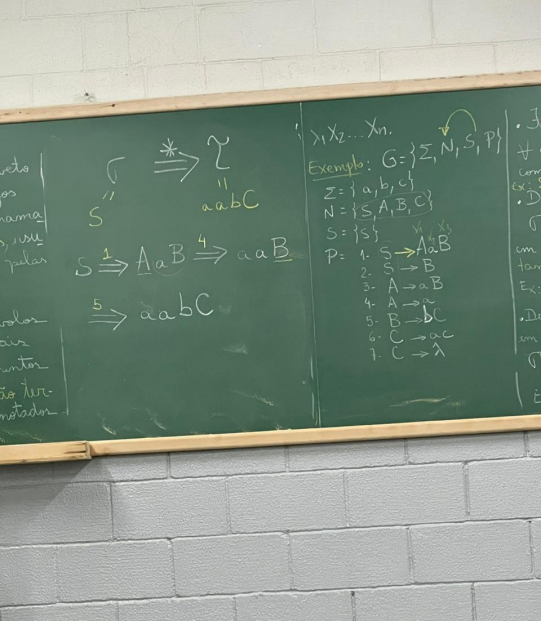 veto
nama
usu
pelas
ais
não ter-
notados
σ *⟹ τ
S aabC
S 1⟹ AaB 4⟹ aaB
5⟹ aabC
X₂...Xn.
Exemplo: G={Σ, N, S, P}
Σ={a, b, c}
N={S, A, B, C}
S={S}
P= 1- S→AaB
2- S→B
3- A→aB
4- A→a
5- B→bC
6- C→ac
7- C→λ
∀
com
Ex:
em
Ex:
em